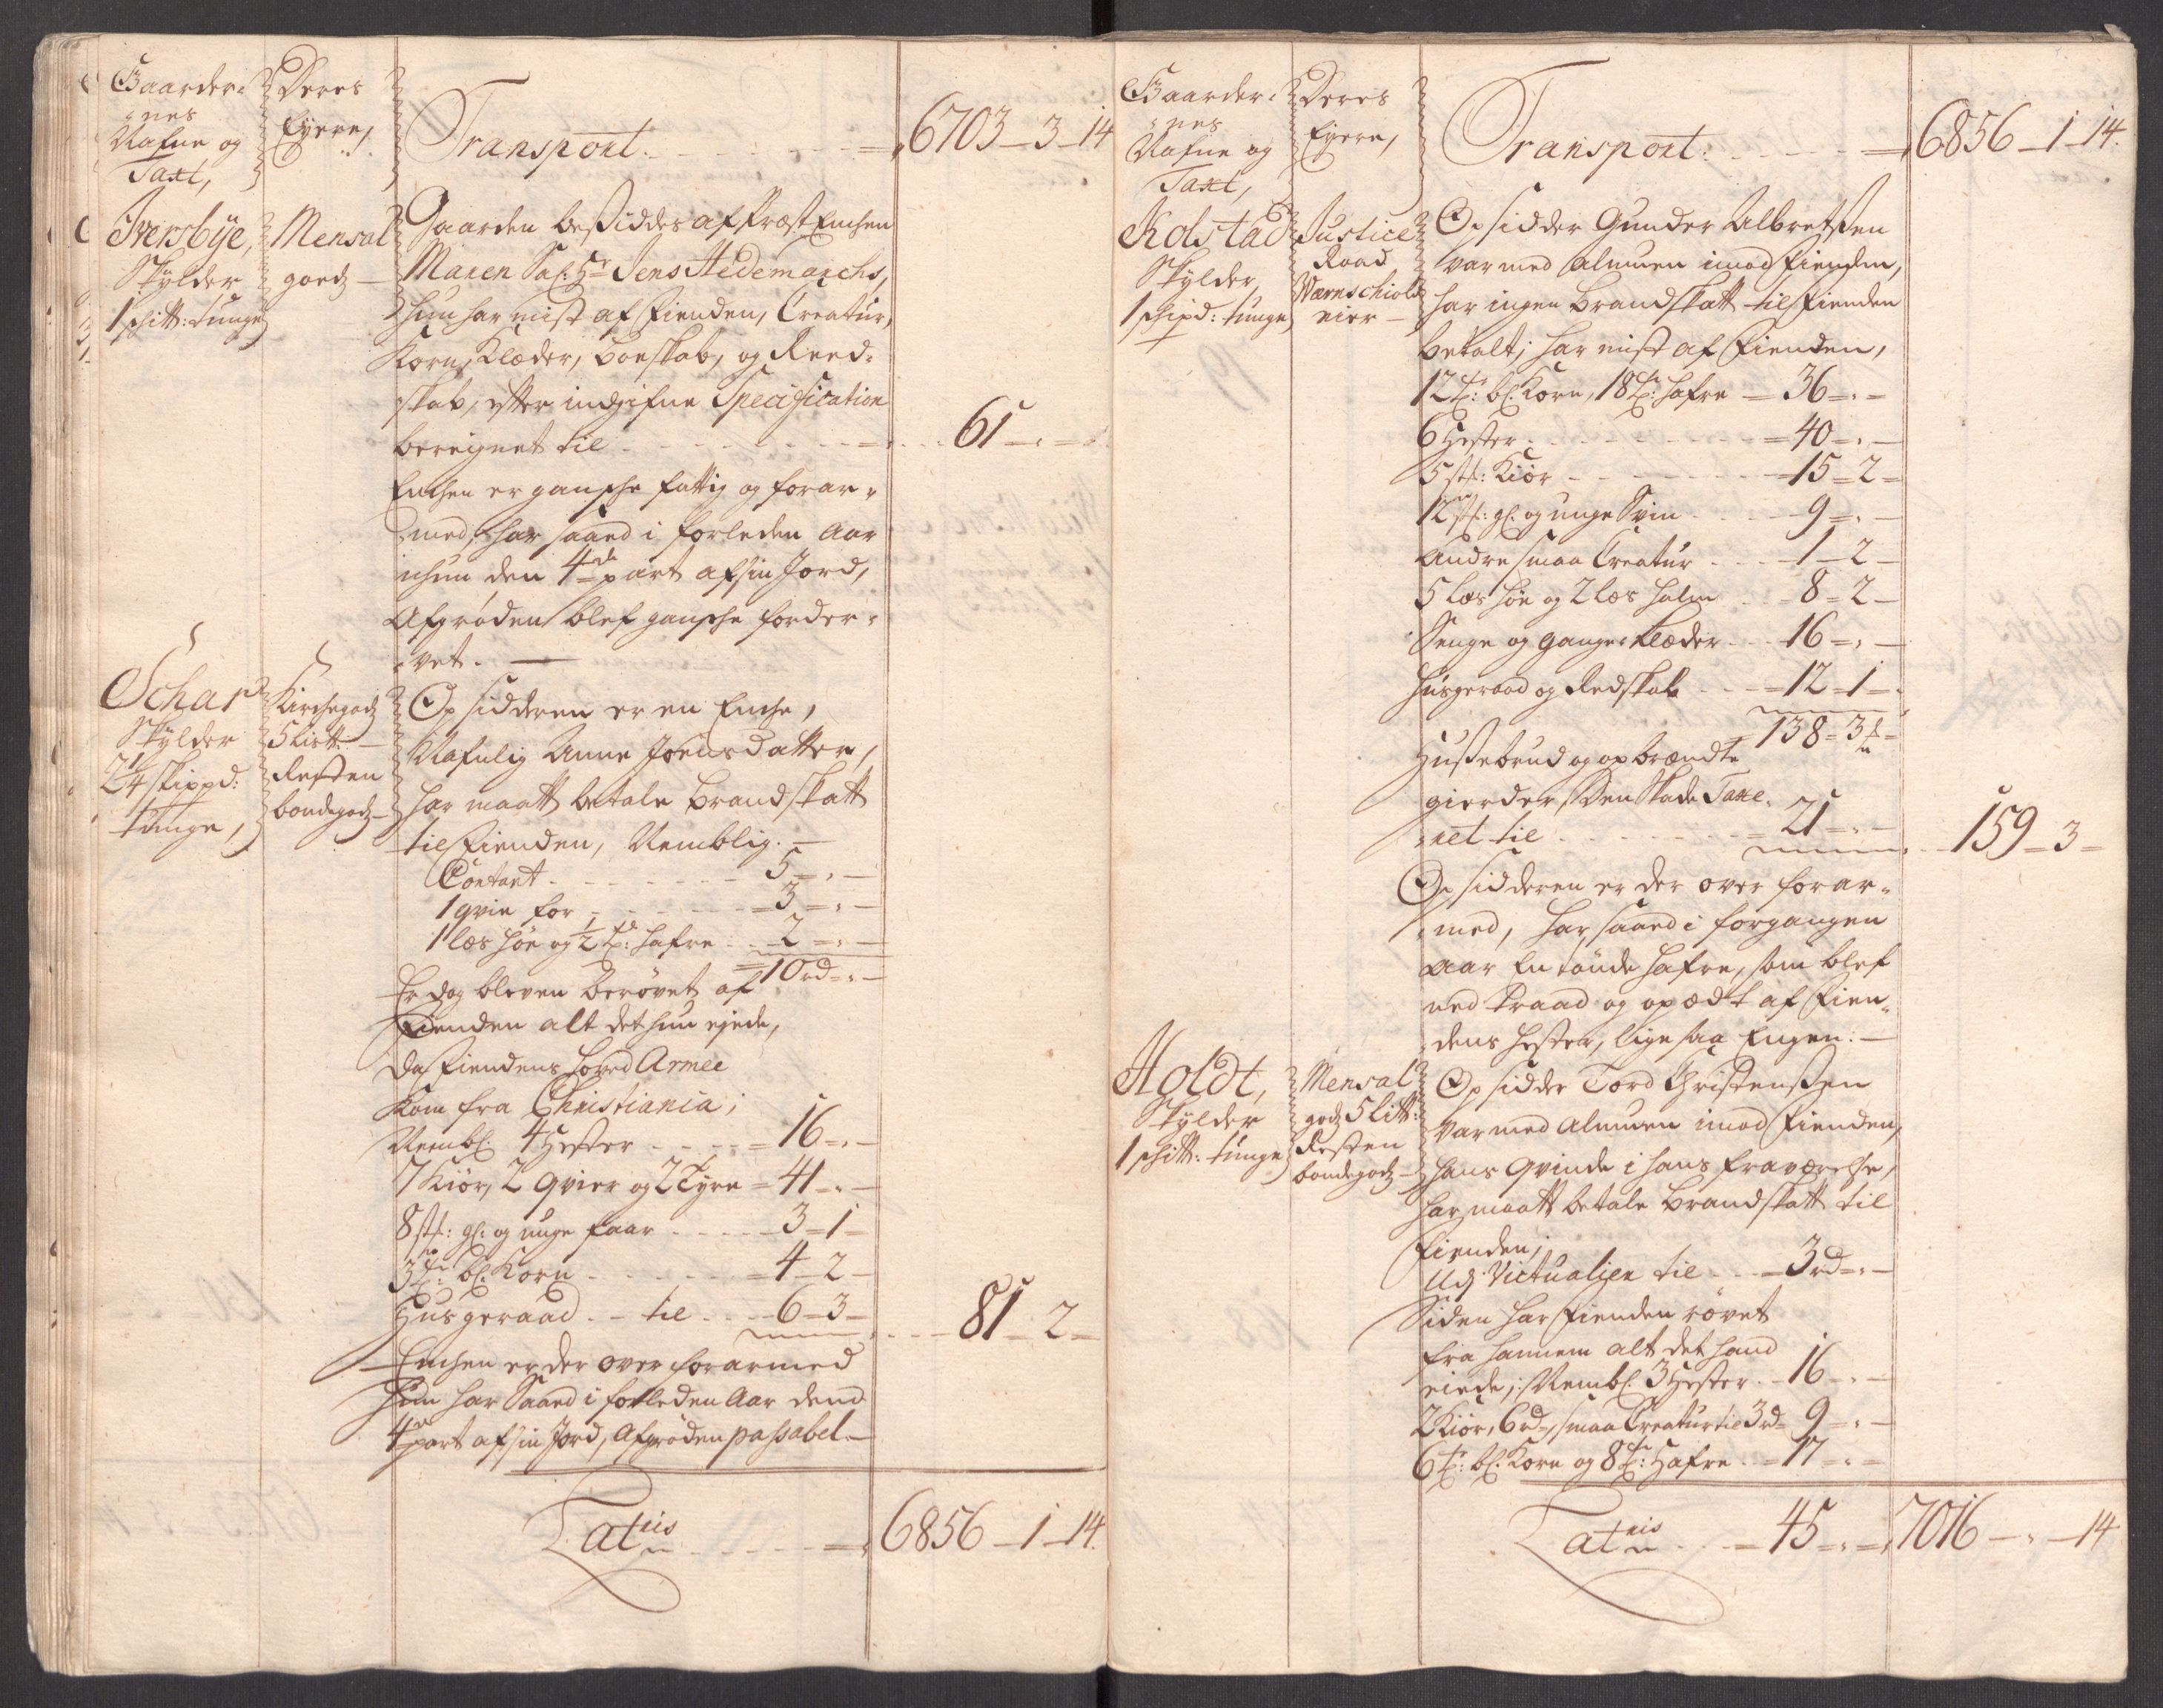 Gaarder-
nes
Nafne og
Taxt,
Deres
Eyere,
Transport. - - - 6703 - 3 - 14
Iversbye,
Skylder
1 schitt: tunge
Mensal
goedz
Gaarden besiddes af Præst Enchen
Maren Sal: Hr Jens Hedemarchs,
hun har mist af Fienden, Creatur,
Korn, Klæder, Boeskab, og Reed-
skab, efter indgifne Specification
beregnet til - - - 61 - " -
Enchen er gansche fattig og forar-
med, har saaed i forleden Aar
ichun den 4de part af sin Jord,
Afgrøden blef gansche forder-
vet. -
Schar
Skylder
2 1/4 skippd:
tunge,
Kirchegodz
5 Lis℔: -
Resten
bondegodz -
Opsidderen er en Enche,
Nafnlig Anne Joensdatter,
har maatt betale Brandskatt
til Fienden, Nemblig. -
Contant - - - 5 - " -
1 qvie for - - - 3 - " -
1 læs høe og 1/2 td: hafre - - 2 - " -
= 10 rd - " -
Er dog bleven berøvet af
Fienden alt det hun ejede,
da Fiendens hoved Armee
kom fra Christiania;
Nembl: 4 Hester - - - 16 - " -
7 Kiør, 2 qvier og 2 Tyre = 41 - " -
8 st: gl: og unge faar - - - 3 - 1 -
3 tr: bl: Korn - - - 4 - 2 -
Husgeraad - - til - - - 6 - 3 - - - 81 - 2 -
Enchen er der over forarmed
hun har Saaed i forleden Aar dend
4 part af sin Jord, Afgrøden passabel -
Lateris - - - 6856 - 1 - 14.
Gaarder-
nes
Nafne og
Taxt,
Deres
Eyere,
Transport: - - - 6856 - 1 - 14.
Kolstad
Skylder,
1 schipd: tunge
Justice
Raad
Værnschiold
eier -
Opsidder Gunder Albretssen
var med Almuen imod Fienden,
har ingen Brandskatt til Fienden
betalt; har mist af Fienden,
12 tr: bl: Korn, 18 tr: hafre - 36 - " -
6 Hester - - - 40 - " -
5 st: Kiør - - - 15 - 2 -
12 st: gl: og unge Sviin - - - 9 - " -
Andre smaa Creatur - - - 1 - 2 -
5 læs høe og 2 læs halm - - 8 - 2 -
Senge og gangeklæder - - 16 - " -
Husgeraad og Redskab - - - 12 - 1 -
- 138 - 3 -
Hussebrud og opbrændte
gierder, Den Skade Taxe-
ret til - - - 21 - " - - - 159 - 3 -
Opsidderen er der over forar-
med, har saaed i forgangen
aar En tønde hafre, som blef
ned traad og op ædt af Fien-
dens hester, lige saa Engen: -
Holdt,
Skylder
1 schitt: tunge
Mensal
godz 5 Litt:
Resten
bondegodz -
Opsidder Tord Christenssen
Var med Almuen imod Fienden,
hans Qvinde i hans fraværelse,
har maatt betale Brandskatt til
Fienden;
Udj Victualjer til - - - 3 rd - " -
Siden har Fienden røvet
fra hannem alt det hand
eiede; Nembl: 3 Hester - - 16 - " -
2 Kiør, 6 rd, smaa Creatur til 3 rd - 9 - " -
6 tr: bl: Korn og 8 tr: Hafre - - 17 - " -
Lateris - - - 45 - " - 7016 - " - 14